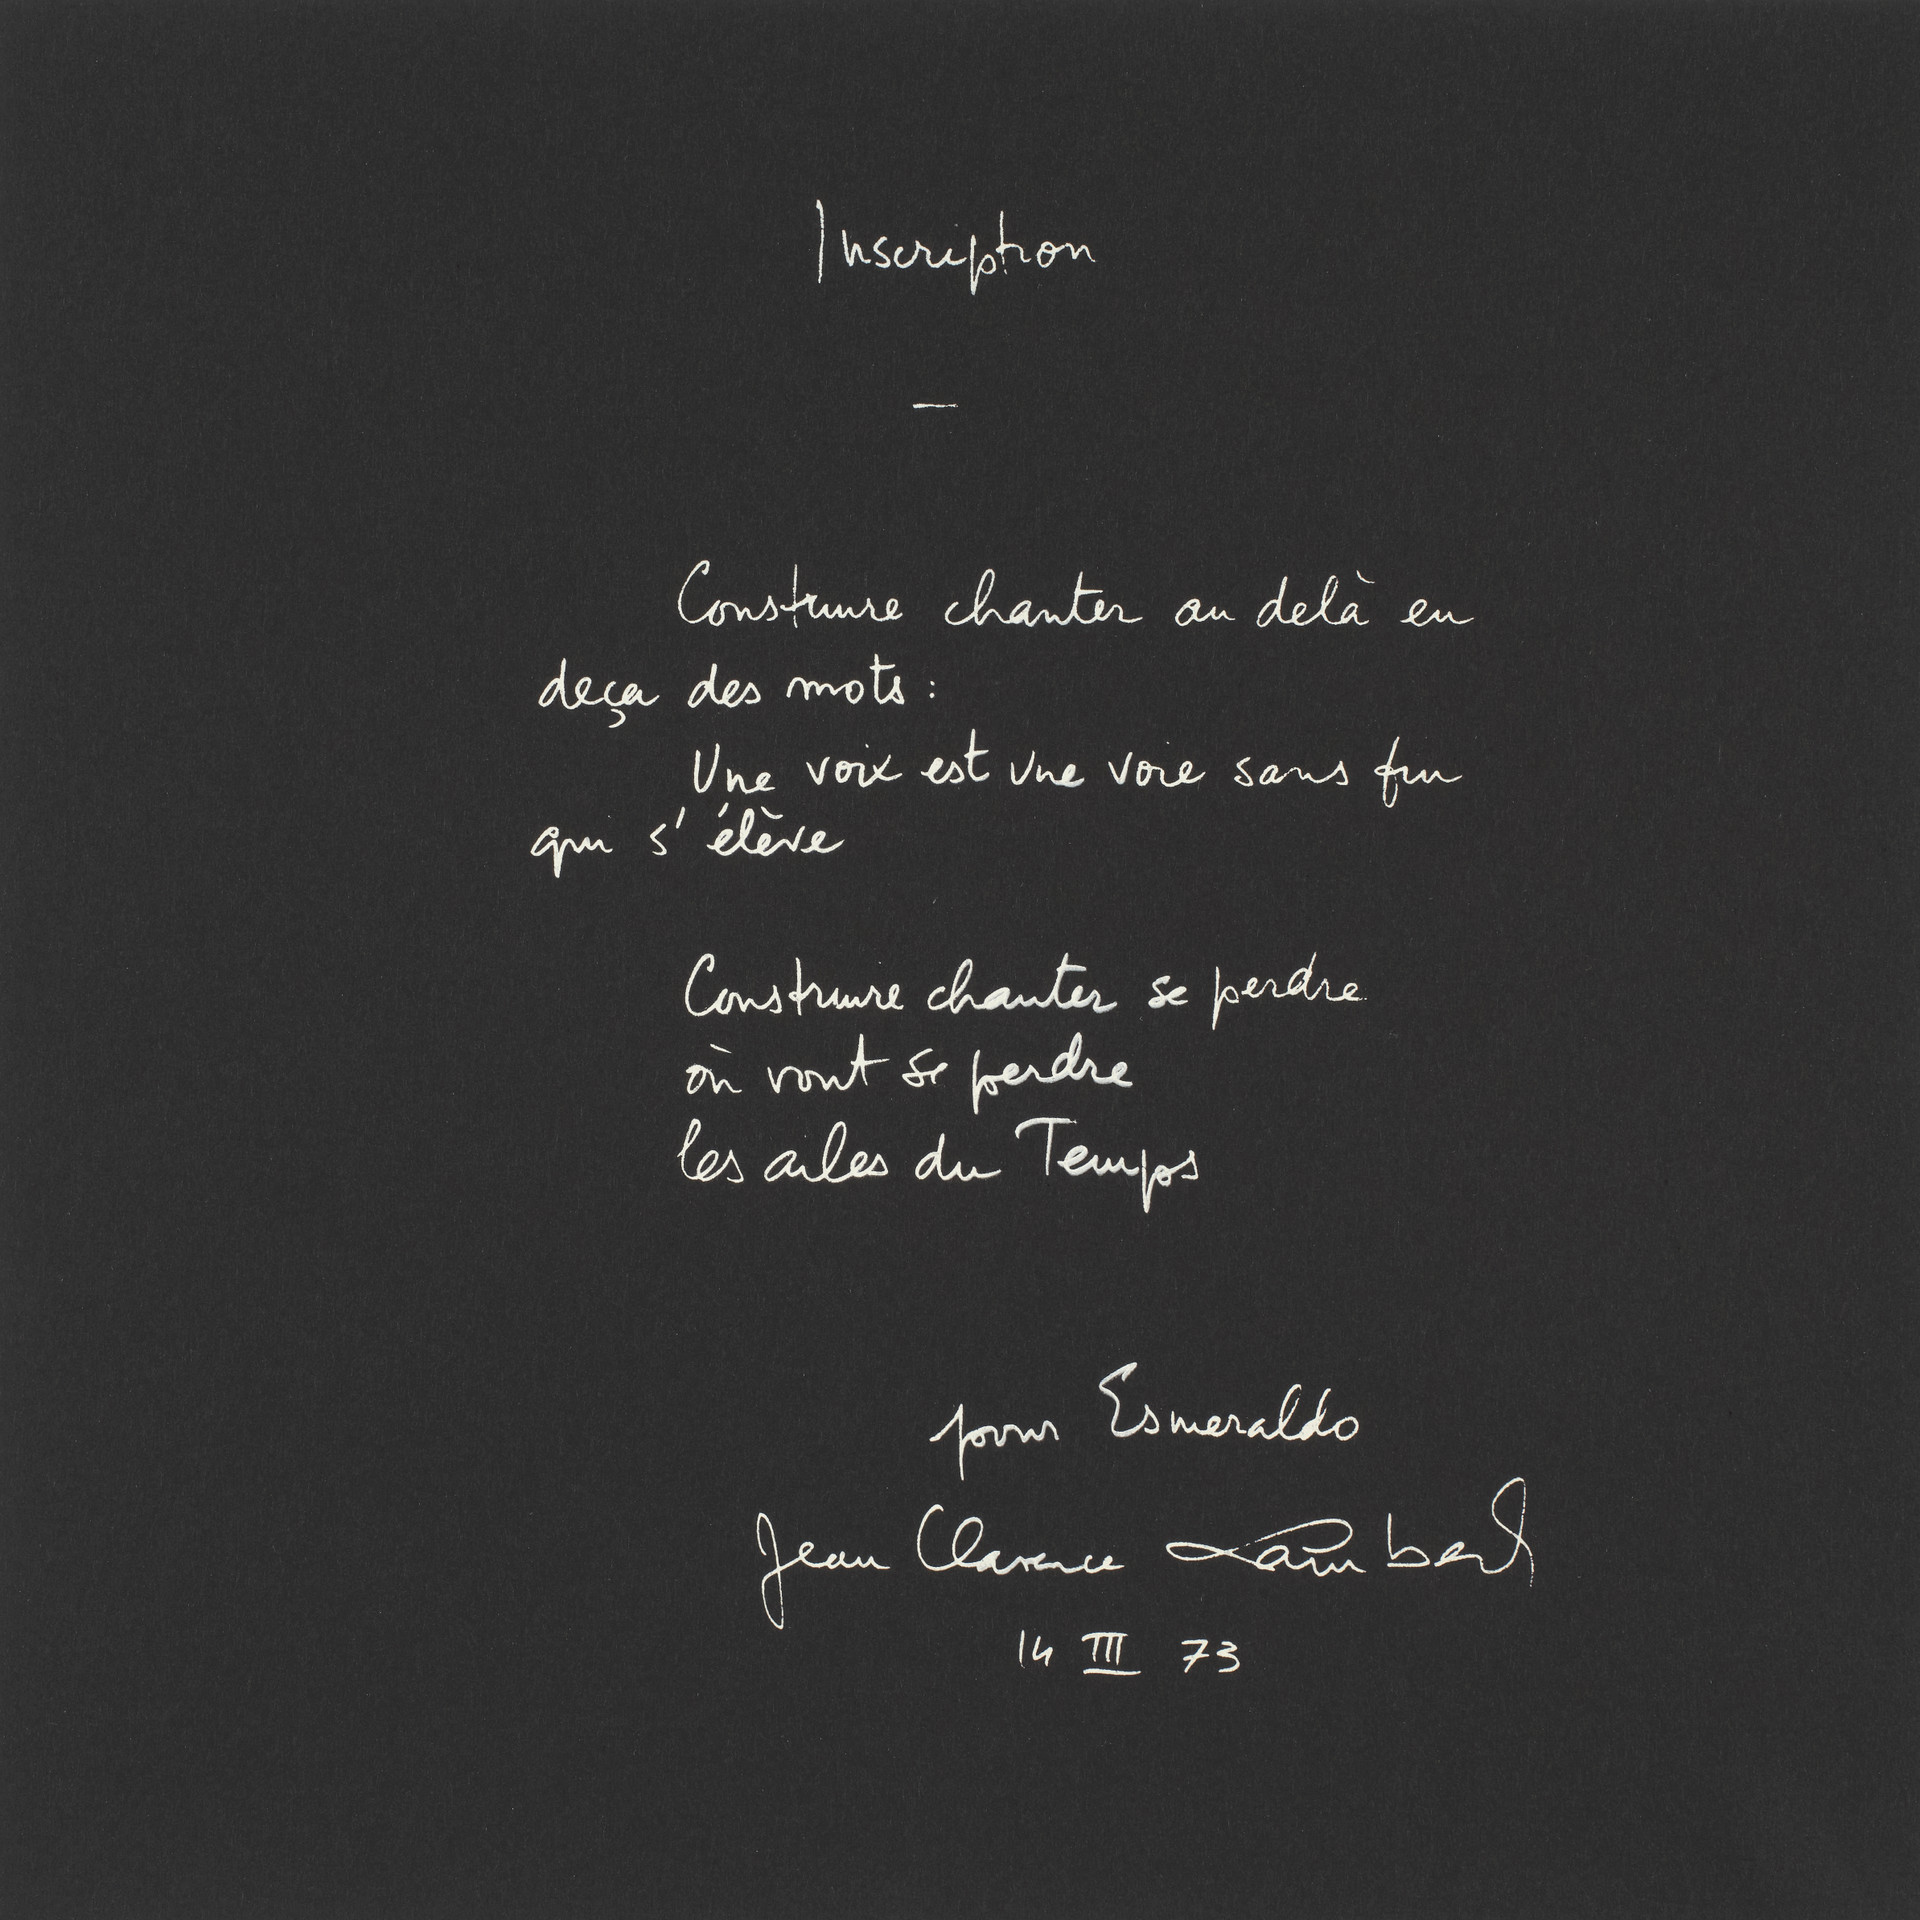 Inscription
—
Construire chanter au delà en
deça des mots :
Une voix est une voie sans fin
qui s'élève
Construire chanter se perdre
où vont se perdre
les ailes du Temps
pour Esmeraldo
Jean Clarence Lambert
14 III 73